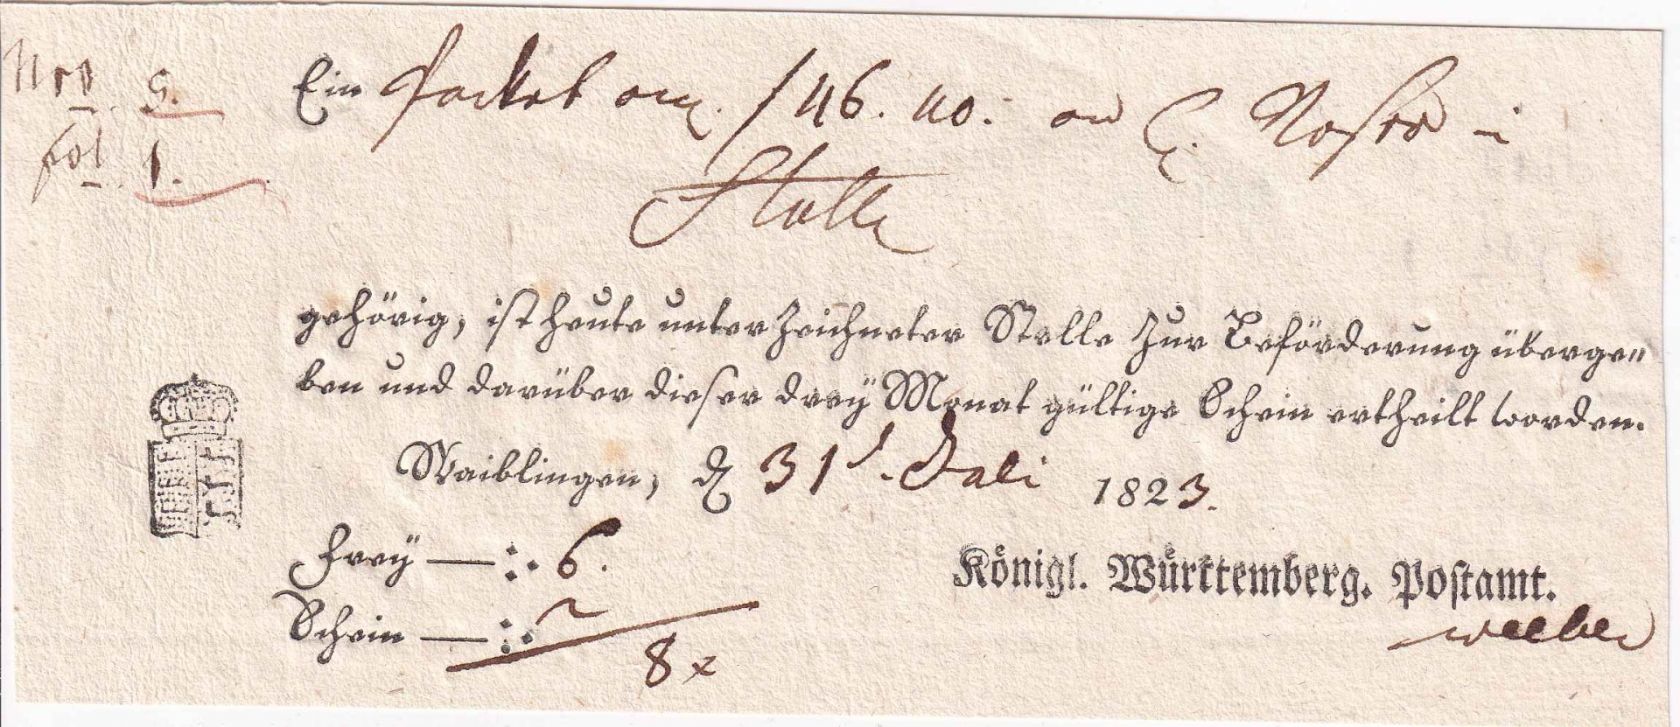 Nro 5.
fol. 1.
Ein Packet mit f 46. 40. an
gehörig, ist heute unterzeichneter Stelle zur Beförderung überge-
ben und darüber dieser drey Monat gültige Schein ertheilt worden.
Waiblingen, d 31t. Juli 1823.
Frey — : 6.
Schein — : 2
8 x
Königl. Württemberg. Postamt.